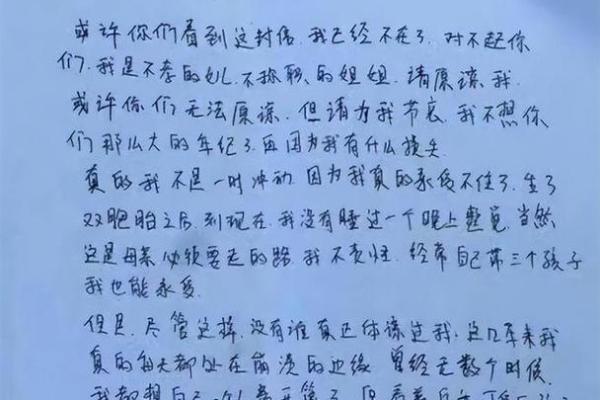 或许你们看到这封信,我已经不在了,对不起你
们,我是不孝的女儿,不称职的姐姐,请原谅我,
或许你们无法原谅,但请为我节哀,我不想你
们那么大的年纪了再因为我有什么损失
真的我不是一时冲动,因为我真的承受不住了,生了
双胞胎之后,到现在,我没有睡过一个晚上整觉,当然
这是母亲必须要走的路,我不责怪,经常自己带三个孩子
我也能承受
但是,尽管这样,没有谁真正体谅过我,这几年来我
真的每天都处在崩溃的边缘,曾经无数个时候,
我都想自己